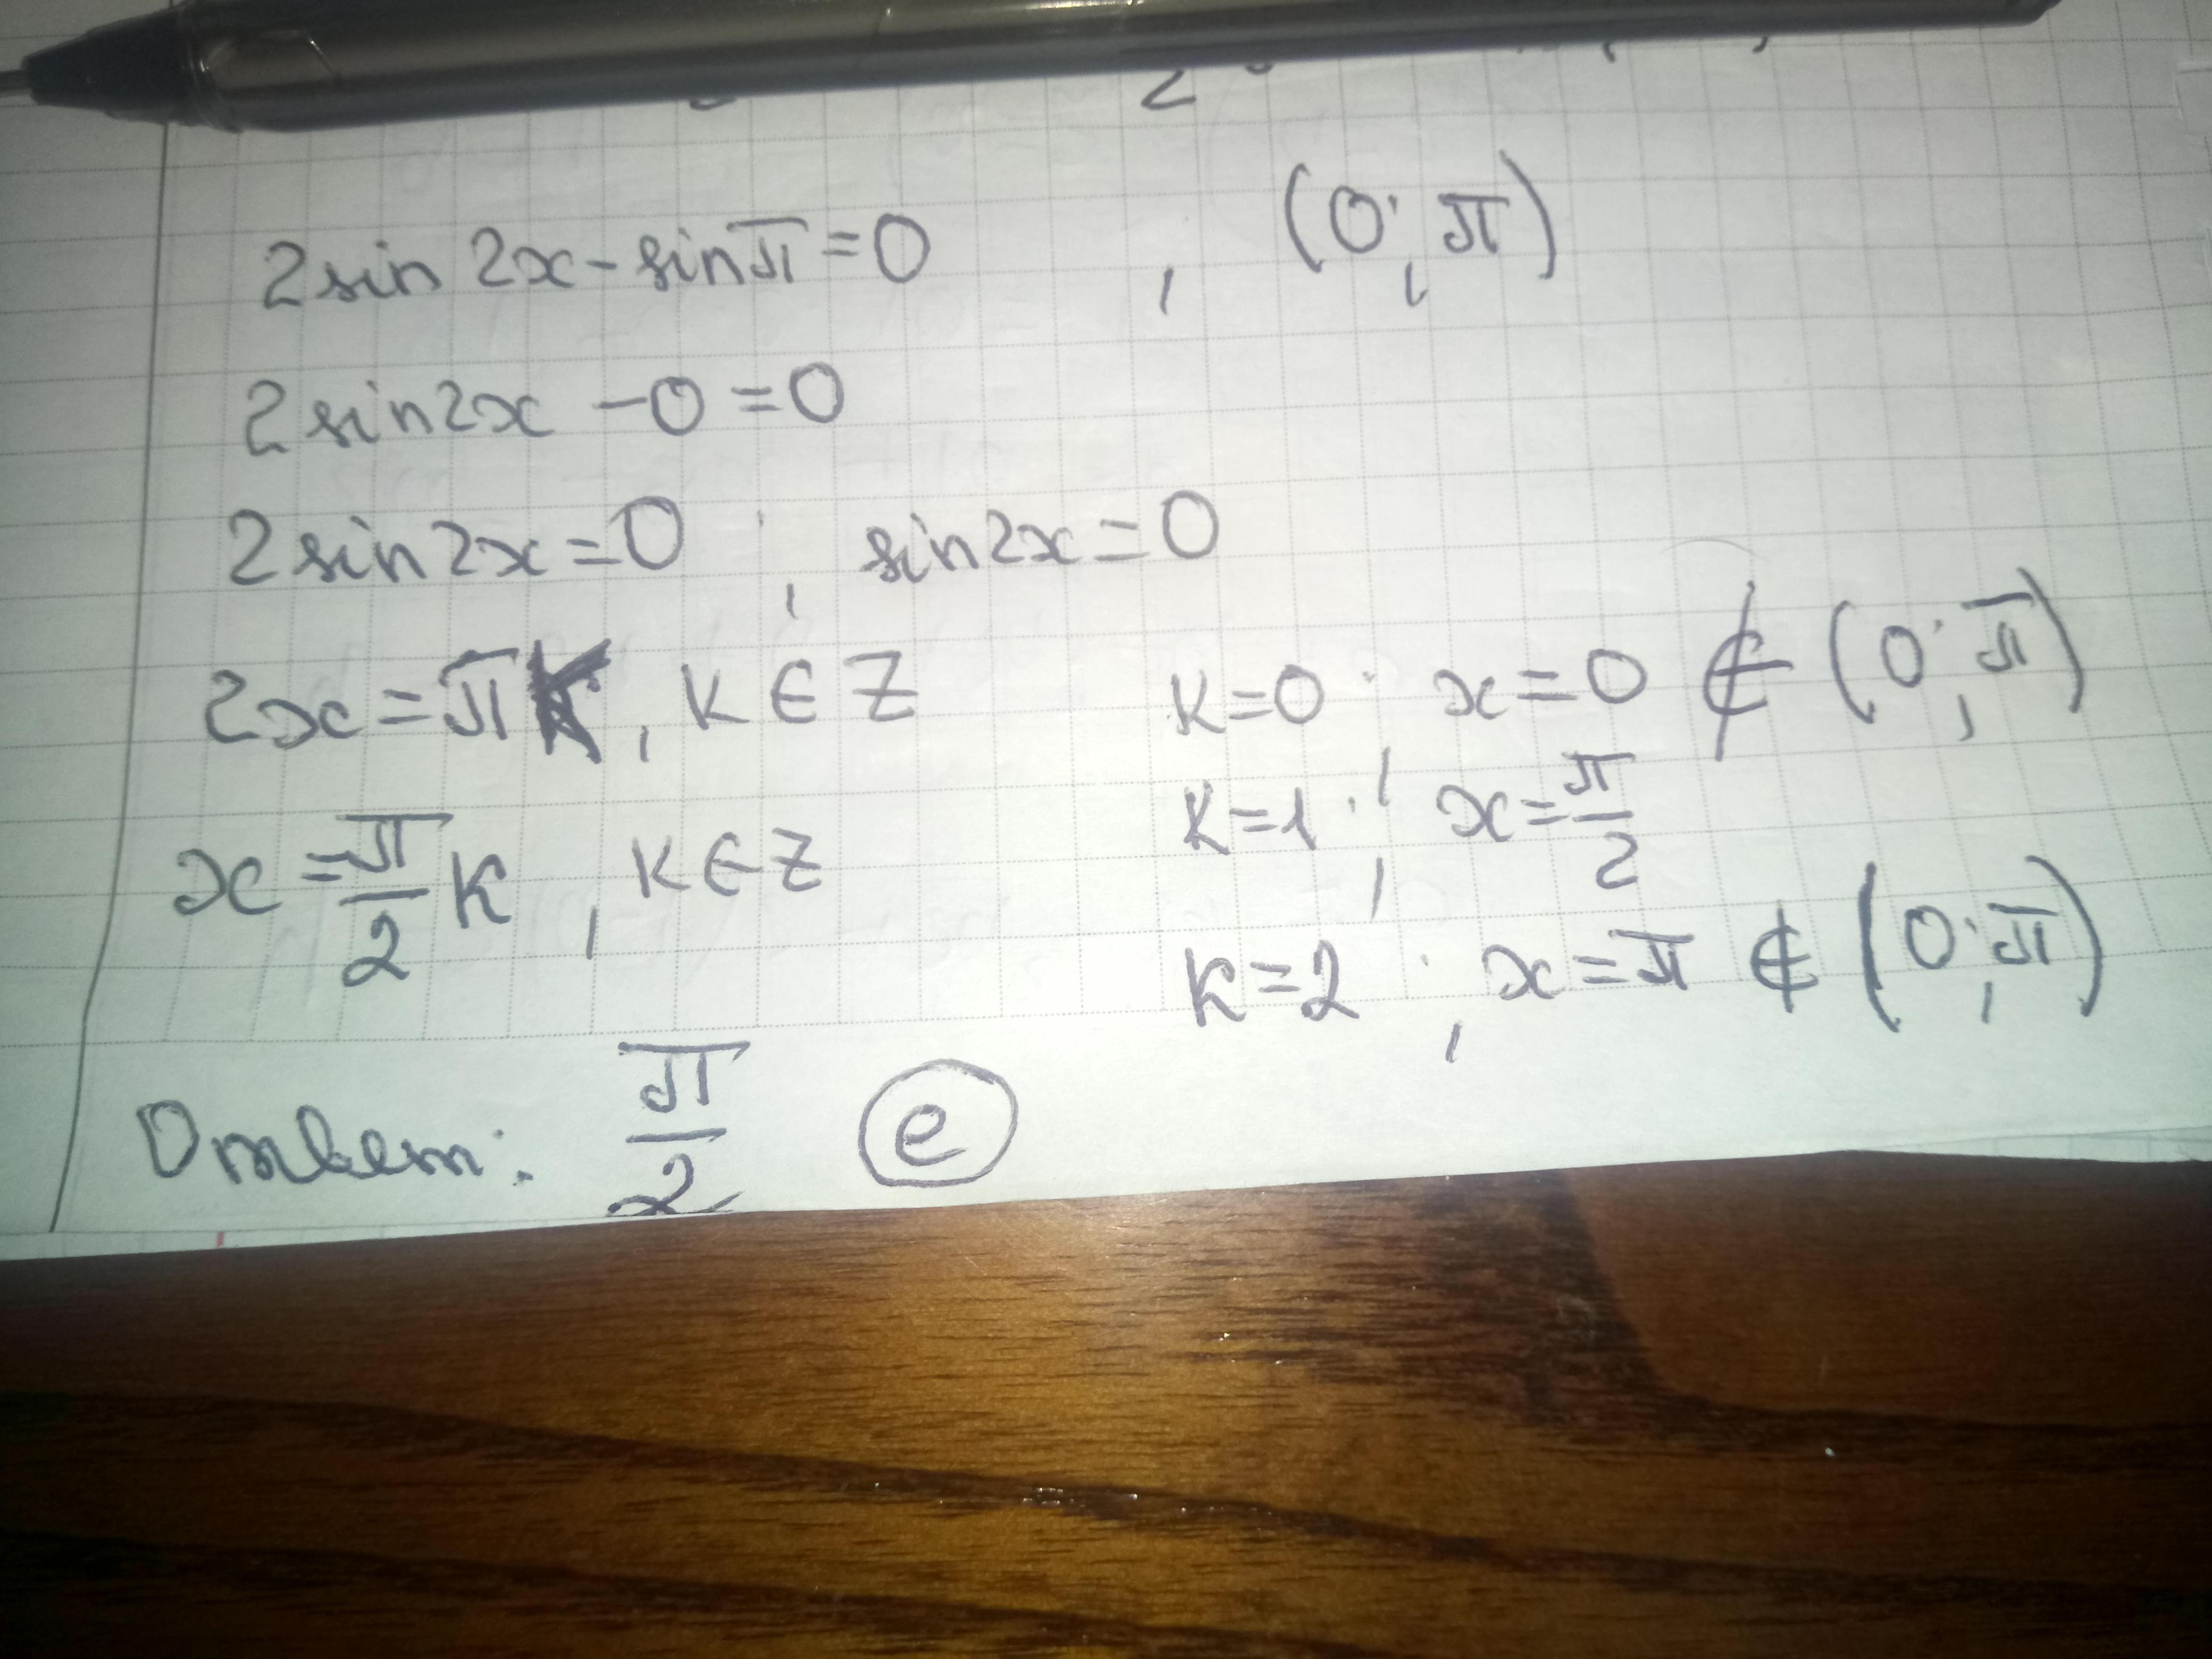 2
2sin 2x - sin π = 0 , (0; π)
2sin2x - 0 = 0
2sin2x = 0 ; sin2x = 0
2x = πK, K ∈ Z
K=0 ; x=0 ∉ (0; π)
K=1 ; x = π/2
x = π/2 K , K ∈ Z
K=2 ; x = π ∉ (0; π)
Ответ: π/2 e